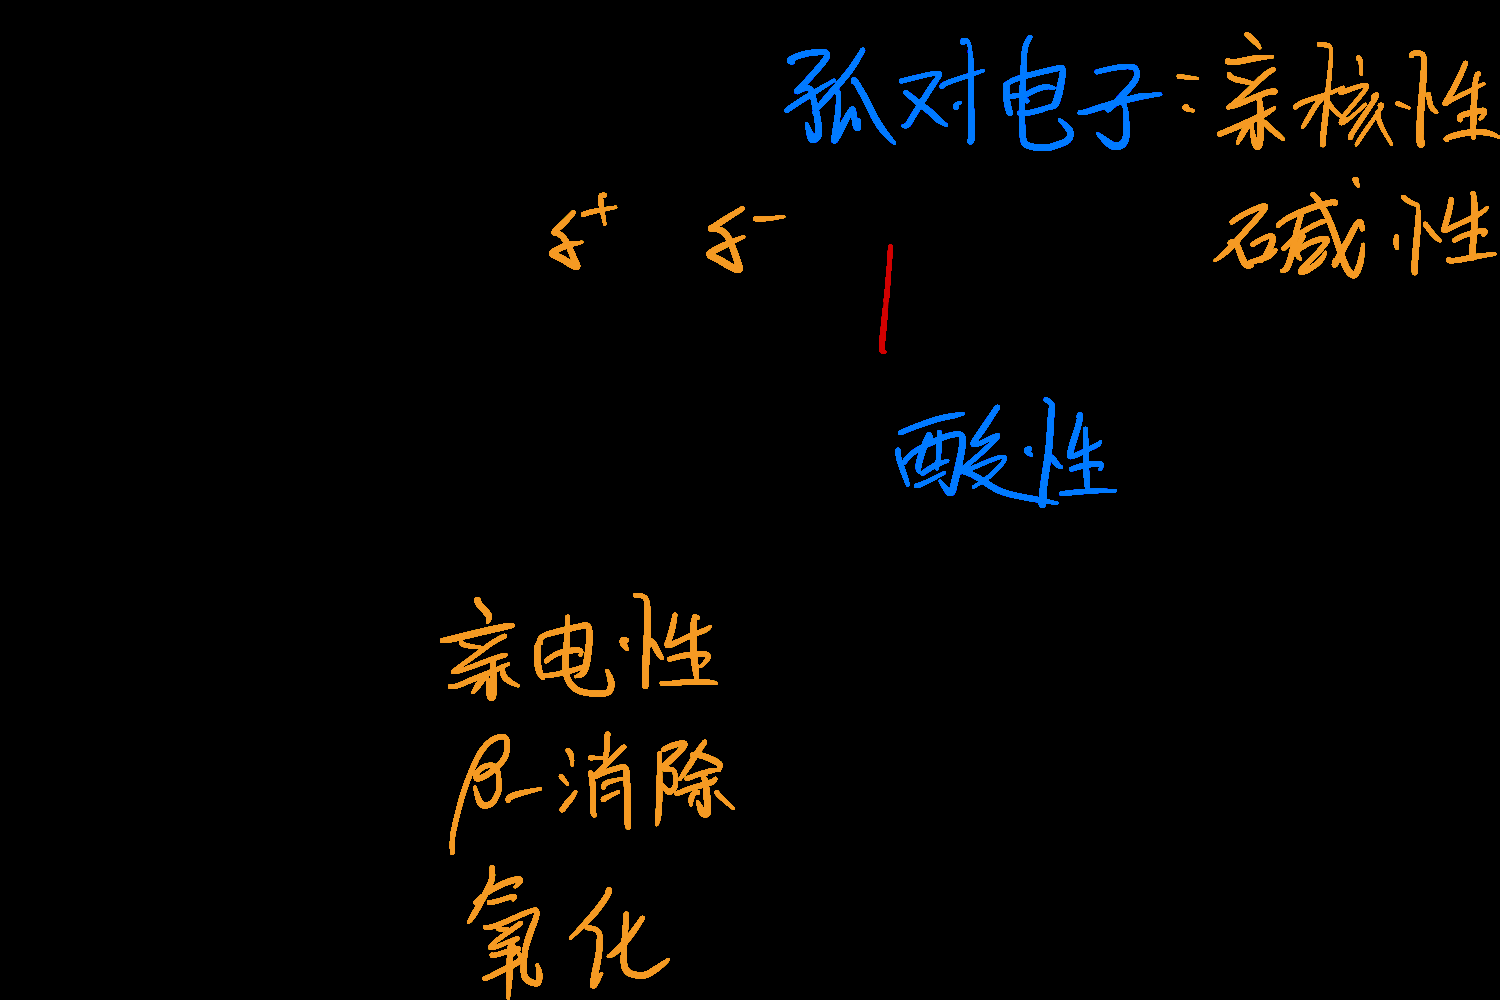 孤对电子:亲核性
碱性
δ+ δ-
酸性
亲电性
β-消除
氧化